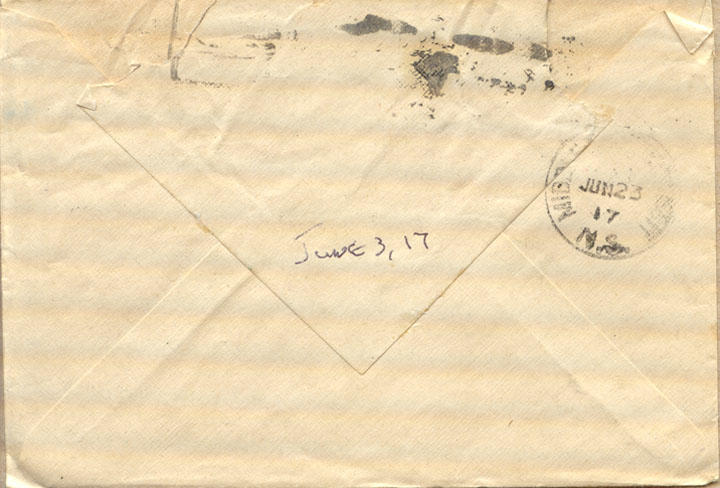 June 3, 17
JUN 23
17
N.S.